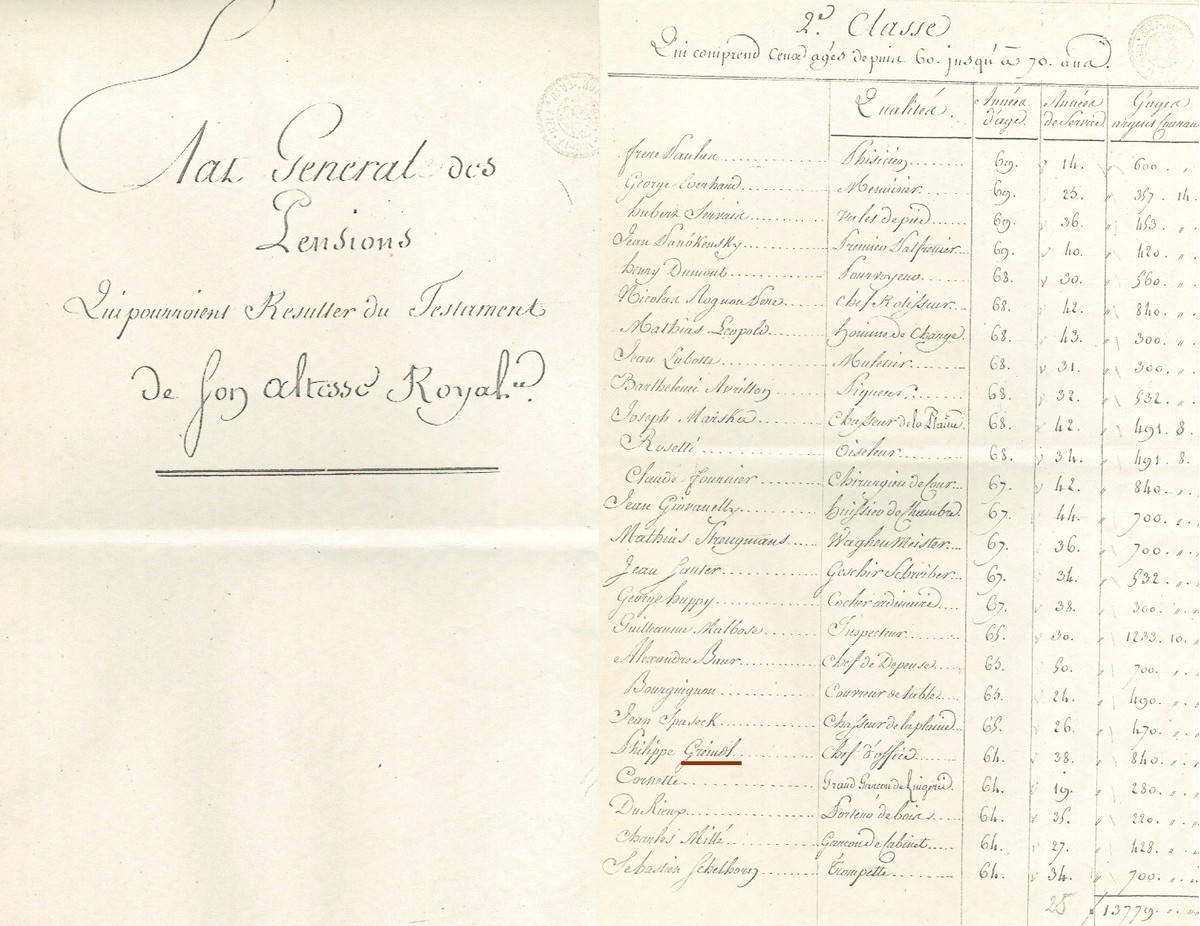 Etat General des
Pensions
Qui pourroient Resulter du Testament
de Son Altesse Royale.
2e. Classe
Qui comprend Ceux agés depuis 60. jusqu'à 70. ans.
Qualités. Années d'age. Années de Service Gages argent Courant
frere Paulus Phisicien 69. 14. 600
George Everhard Menuisier 69. 25. 357. 14.
hubert Servais valet de pied 69. 36. 453.
Jean Premier Palfrenier 69. 40. 420.
henry Dumont Pourvoyeur 68. 30. 560.
Nicolas Rognon Pere Chef Rotisseur 68. 42. 840.
Mathias Leopold homme de Charge 68. 43. 300.
Jean Labotte Muletier 68. 31. 300.
Barthelemi Avrillon Piqueur 68. 32. 532.
Joseph Chasseur de la Plaine 68. 42. 491. 8.
Rosetti Oiseleur 68. 34. 491. 8.
Claude fournier Chirurgien de Cour 67. 42. 840.
Jean Giovanelly huissier de Chambre 67. 44. 700.
Mathias Waghen Meister 67. 36. 700.
Jean Sauter Geschir Schreiber 67. 34. 532.
George huppy Cocher ordinaire 67. 38. 300.
Guilleaume Malbose Inspecteur 65. 30. 1233. 10.
Alexandre Baur Chef de Depense 65. 50. 700.
Bourguignon Couvreur de table 65. 24. 490.
Jean Spaseck Chasseur de la plaine 65. 26. 470.
Philippe Greindl Chef d'office 64. 38. 840.
Cornette Grand Garçon de 64. 19. 280.
Du Rieux Porteur de bois 64. 35. 220.
Charles Millé Garçon de Cabinet 64. 27. 428.
Sebastien Schelhorn Trompette 64. 34. 700.
25 f 13779.